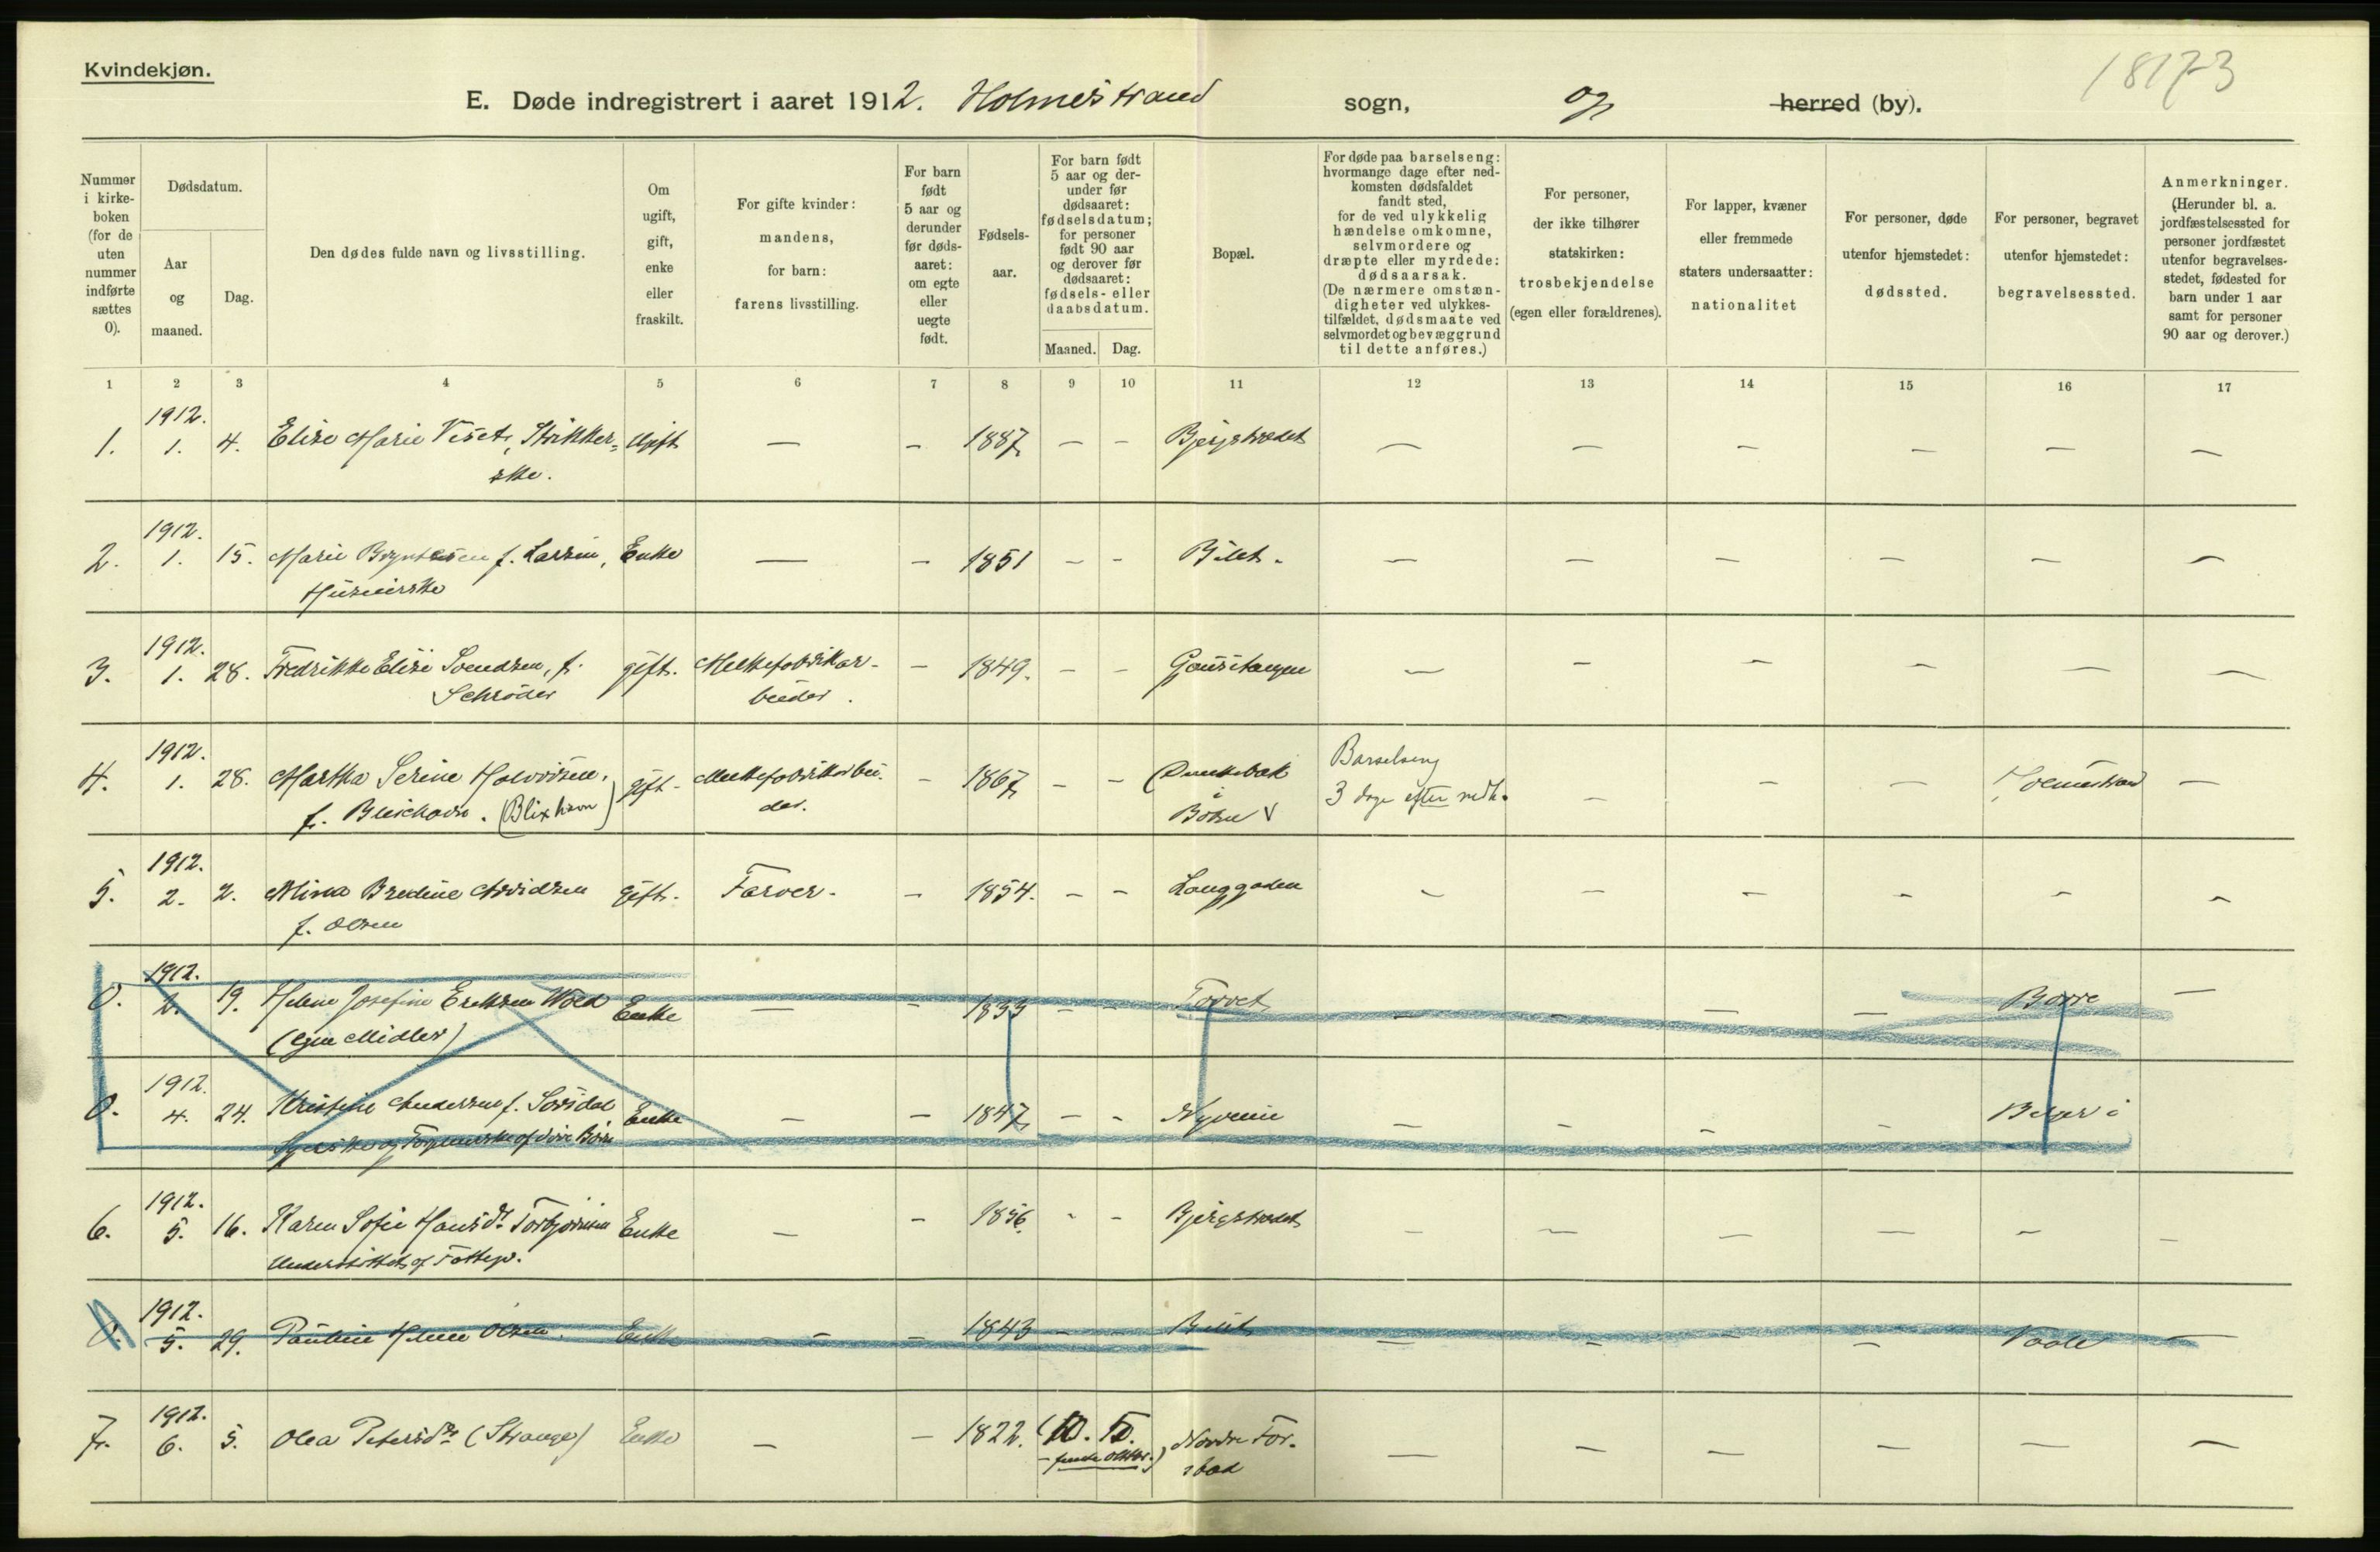 Kvindekjøn.
18173
E. Døde indregistrert i aaret 1912. Holmestrand sogn, og herred (by).
Nummer i kirkeboken (for de uten nummer indførte sættes 0).
Dødsdatum.
Aar og maaned.
Dag.
Den dødes fulde navn og livsstilling.
Om ugift, gift, enke eller fraskilt.
For gifte kvinder: mandens, for barn: farens livsstilling.
For barn født 5 aar og derunder før dødsaaret: om egte eller uegte født.
Fødselsaar.
For barn født 5 aar og derunder før dødsaaret: fødselsdatum; for personer født 90 aar og derover før dødsaaret: fødsels- eller daabsdatum.
Maaned. Dag.
Bopæl.
For døde paa barselseng: hvormange dage efter nedkomsten dødsfaldet fandt sted, for de ved ulykkelig hændelse omkomne, selvmordere og dræpte eller myrdede: dødsaarsak. (De nærmere omstændigheter ved ulykkestilfældet, dødsmaate ved selvmordet og bevæggrund til dette anføres.)
For personer, der ikke tilhører statskirken: trosbekjendelse (egen eller forældrenes).
For lapper, kvæner eller fremmede staters undersaatter: nationalitet
For personer, døde utenfor hjemstedet: dødssted.
For personer, begravet utenfor hjemstedet: begravelsessted.
Anmerkninger. (Herunder bl. a. jordfæstelsessted for personer jordfæstet utenfor begravelsesstedet, fødested for barn under 1 aar samt for personer 90 aar og derover.)
1 2 3 4 5 6 7 8 9 10 11 12 13 14 15 16 17
1912.
1. 1. 4. Elise Marie Viset, Strikker= Ugift — - 1887 - - Bjergstrædet — — — — — —
ske.
1912.
2. 1. 15. Marie Bryntesen f. Larsen, Enke — - 1851 - - Bilet. — — — — — —
Huseierske
1912.
3. 1. 28. Fredrikke Elise Svendsen, f. gift. Melkefabrikar- - 1849. - - Gausetangen — — — — — —
Schrøder beider.
1912.
4. 1. 28. Martha Serine Halvorsen, gift - Melkefabrikarbei- - 1867 - - Barselseng
f. (Blixhavn) der. i Botne 3 dage efter nedk. — — — Holmestrand —
1912.
5. 2. 2. Mina Bredine Arvidsen gift. Farver. - 1854. - - Langgaden — — — — — —
f. Olsen
1912.
0. 2. 19. Helene Josefine Eriksen Wold Enke — - 1833 - - Torvet — — — — Borre —
(egne Midler)
1912.
0. 4. 24. Kristine Andersen f. Enke — - 1847 - - Nyveien — — — —
og af sine Børn
1912.
6. 5. 16. Karen Sofie Hansdr Torbjørnsen Enke — - 1856. - - Bjergstrædet — — — — — —
Understøttet af Fattigv.
1912.
0. 5. 29. Pauline Helene Olsen. Enke - - - 1843 - - Bilet — — — — Vaale —
1912.
7. 6. 5. Olea Petersdr (Stranger) Enke — - 1822. (10. 5. Nordre Tor- — — — — — —
stad